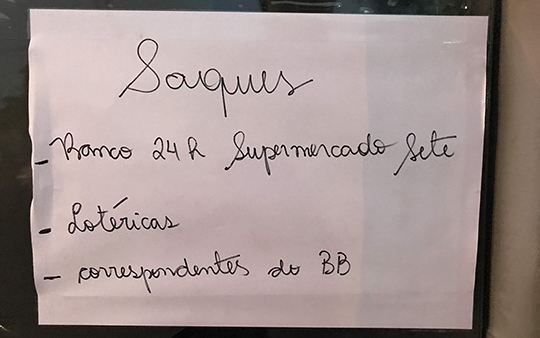 Saques
- Banco 24h Supermercado Sete
- Lotéricas
- correspondentes do BB